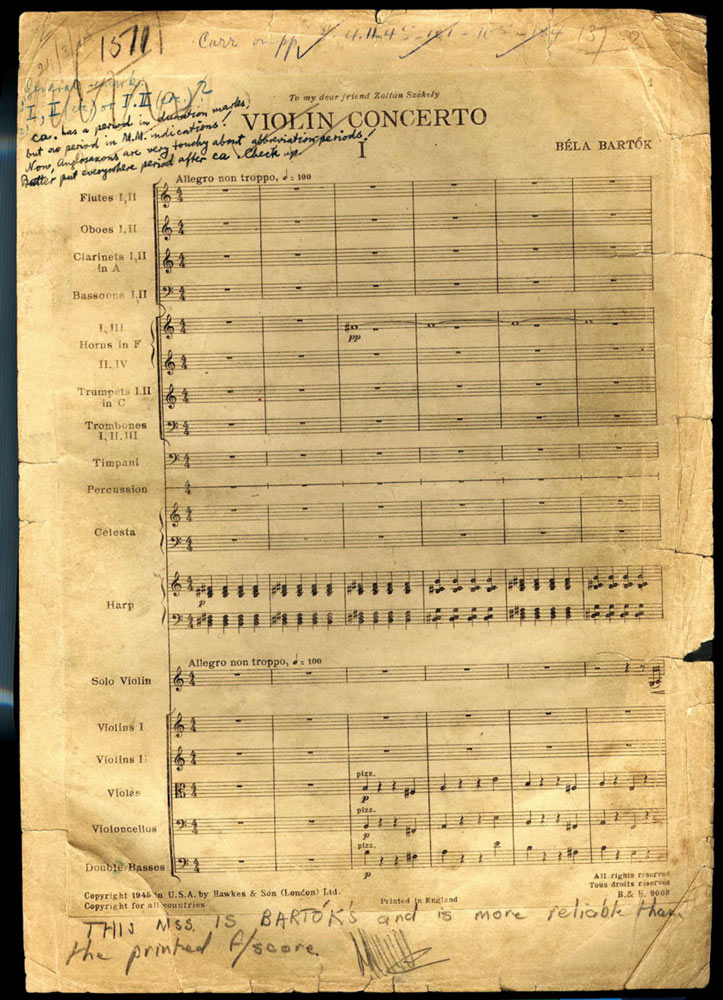 1571
Corr on pp
General remark:
I, II (a) or I. II (a.)?
ca. has a period in duration marks,
but no period in M.M. indications!
Now, Anglosaxons are very touchy about abbreviation-periods!
Better put everywhere period after ca. Check up.
To my dear friend Zoltán Székely
VIOLIN CONCERTO
I
BÉLA BARTÓK
1
Allegro non troppo, ♩= 100
Flutes I,II
Oboes I,II
Clarinets I,II
in A
Bassoons I,II
I,III
Horns in F
pp
II,IV
Trumpets I,II
in C
Trombones
I,II,III
Timpani
Percussion
Celesta
Harp
p
Allegro non troppo, ♩= 100
Solo Violin
Violins I
Violins II
pizz.
Violas
p
pizz.
Violoncellos
p
pizz.
Double Basses
p
All rights reserved
Tous droits réservés
Copyright 1946 in U.S.A. by Hawkes & Son (London) Ltd.
Printed in England
B. & H. 9003
Copyright for all countries
THIS MSS. IS BARTÓK'S and is more reliable than
the printed f/score.